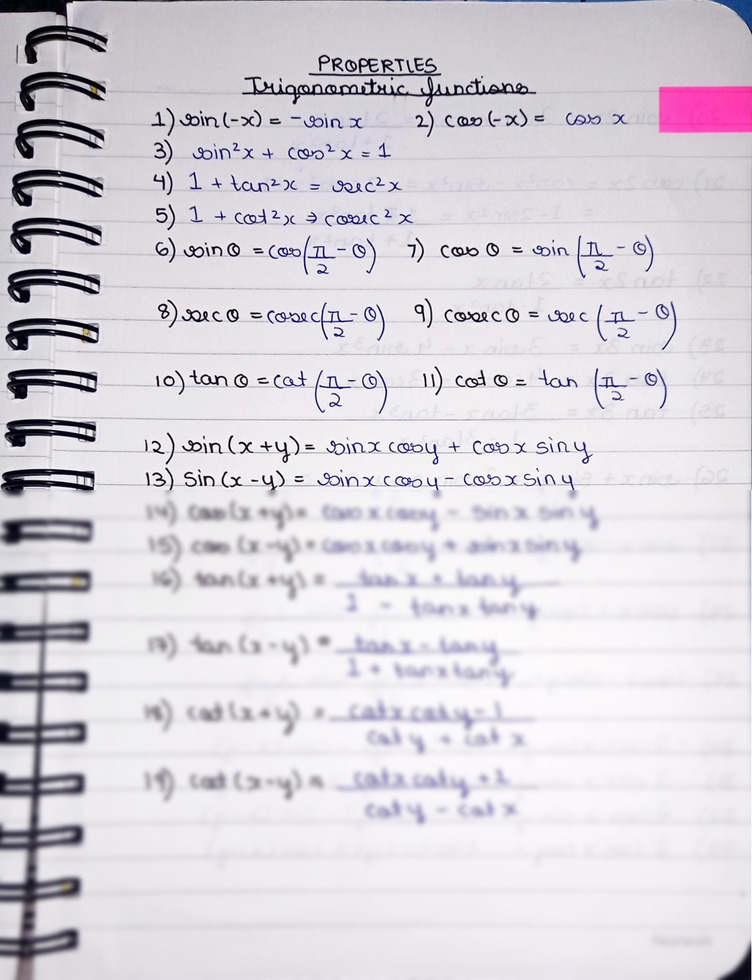 PROPERTIES
Trigonometric functions
1) sin(-x) = -sin x 2) cos(-x) = cos x
3) sin²x + cos²x = 1
4) 1 + tan²x = sec²x
5) 1 + cot²x ⇒ cosec²x
6) sin θ = cos(π/2 - θ) 7) cos θ = sin(π/2 - θ)
8) sec θ = cosec(π/2 - θ) 9) cosec θ = sec(π/2 - θ)
10) tan θ = cot(π/2 - θ) 11) cot θ = tan(π/2 - θ)
12) sin(x+y) = sinx cosy + cosx siny
13) sin(x-y) = sinx cosy - cosx siny
14) cos(x+y) = cosx cosy - sinx siny
15) cos(x-y) = cosx cosy + sinx siny
16) tan(x+y) = tanx + tany
1 - tanx tany
17) tan(x-y) = tanx - tany
1 + tanx tany
18) cot(x+y) = cotx coty - 1
coty + cotx
19) cot(x-y) = cotx coty + 1
coty - cotx